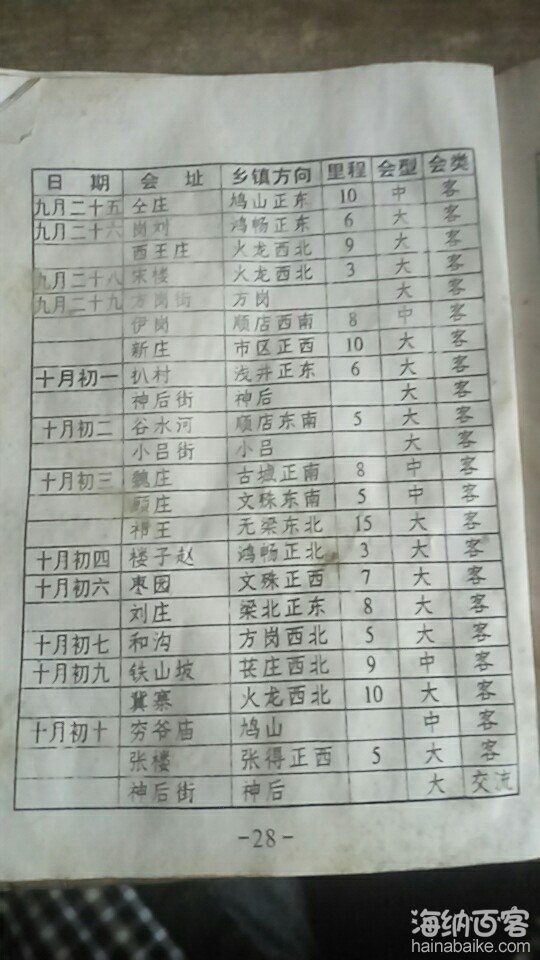 日 期 会 址 乡镇方向 里程 会型 会类
九月二十五 仝庄 鸠山正东 10 中 客
九月二十六 岗刘 鸿畅正东 6 大 客
西王庄 火龙西北 9 大 客
九月二十八 宋楼 火龙西北 3 大 客
九月二十九 方岗街 方岗 大 客
伊岗 顺店西南 8 中 客
新庄 市区正西 10 大 客
十月初一 扒村 浅井正东 6 大 客
神后街 神后 大 客
十月初二 谷水河 顺店东南 5 大 客
小吕街 小吕 大 客
十月初三 魏庄 古城正南 8 中 客
顾庄 文殊东南 5 中 客
祁王 无梁东北 15 大 客
十月初四 楼子赵 鸿畅正北 3 大 客
十月初六 枣园 文殊正西 7 大 客
刘庄 梁北正东 8 大 客
十月初七 和沟 方岗西北 5 大 客
十月初九 铁山坡 苌庄西北 9 中 客
冀寨 火龙西北 10 大 客
十月初十 穷爷庙 鸠山 中 客
张楼 张得正西 5 大 客
神后街 神后 大 交流
-28-
海纳百客
hainabaike.com